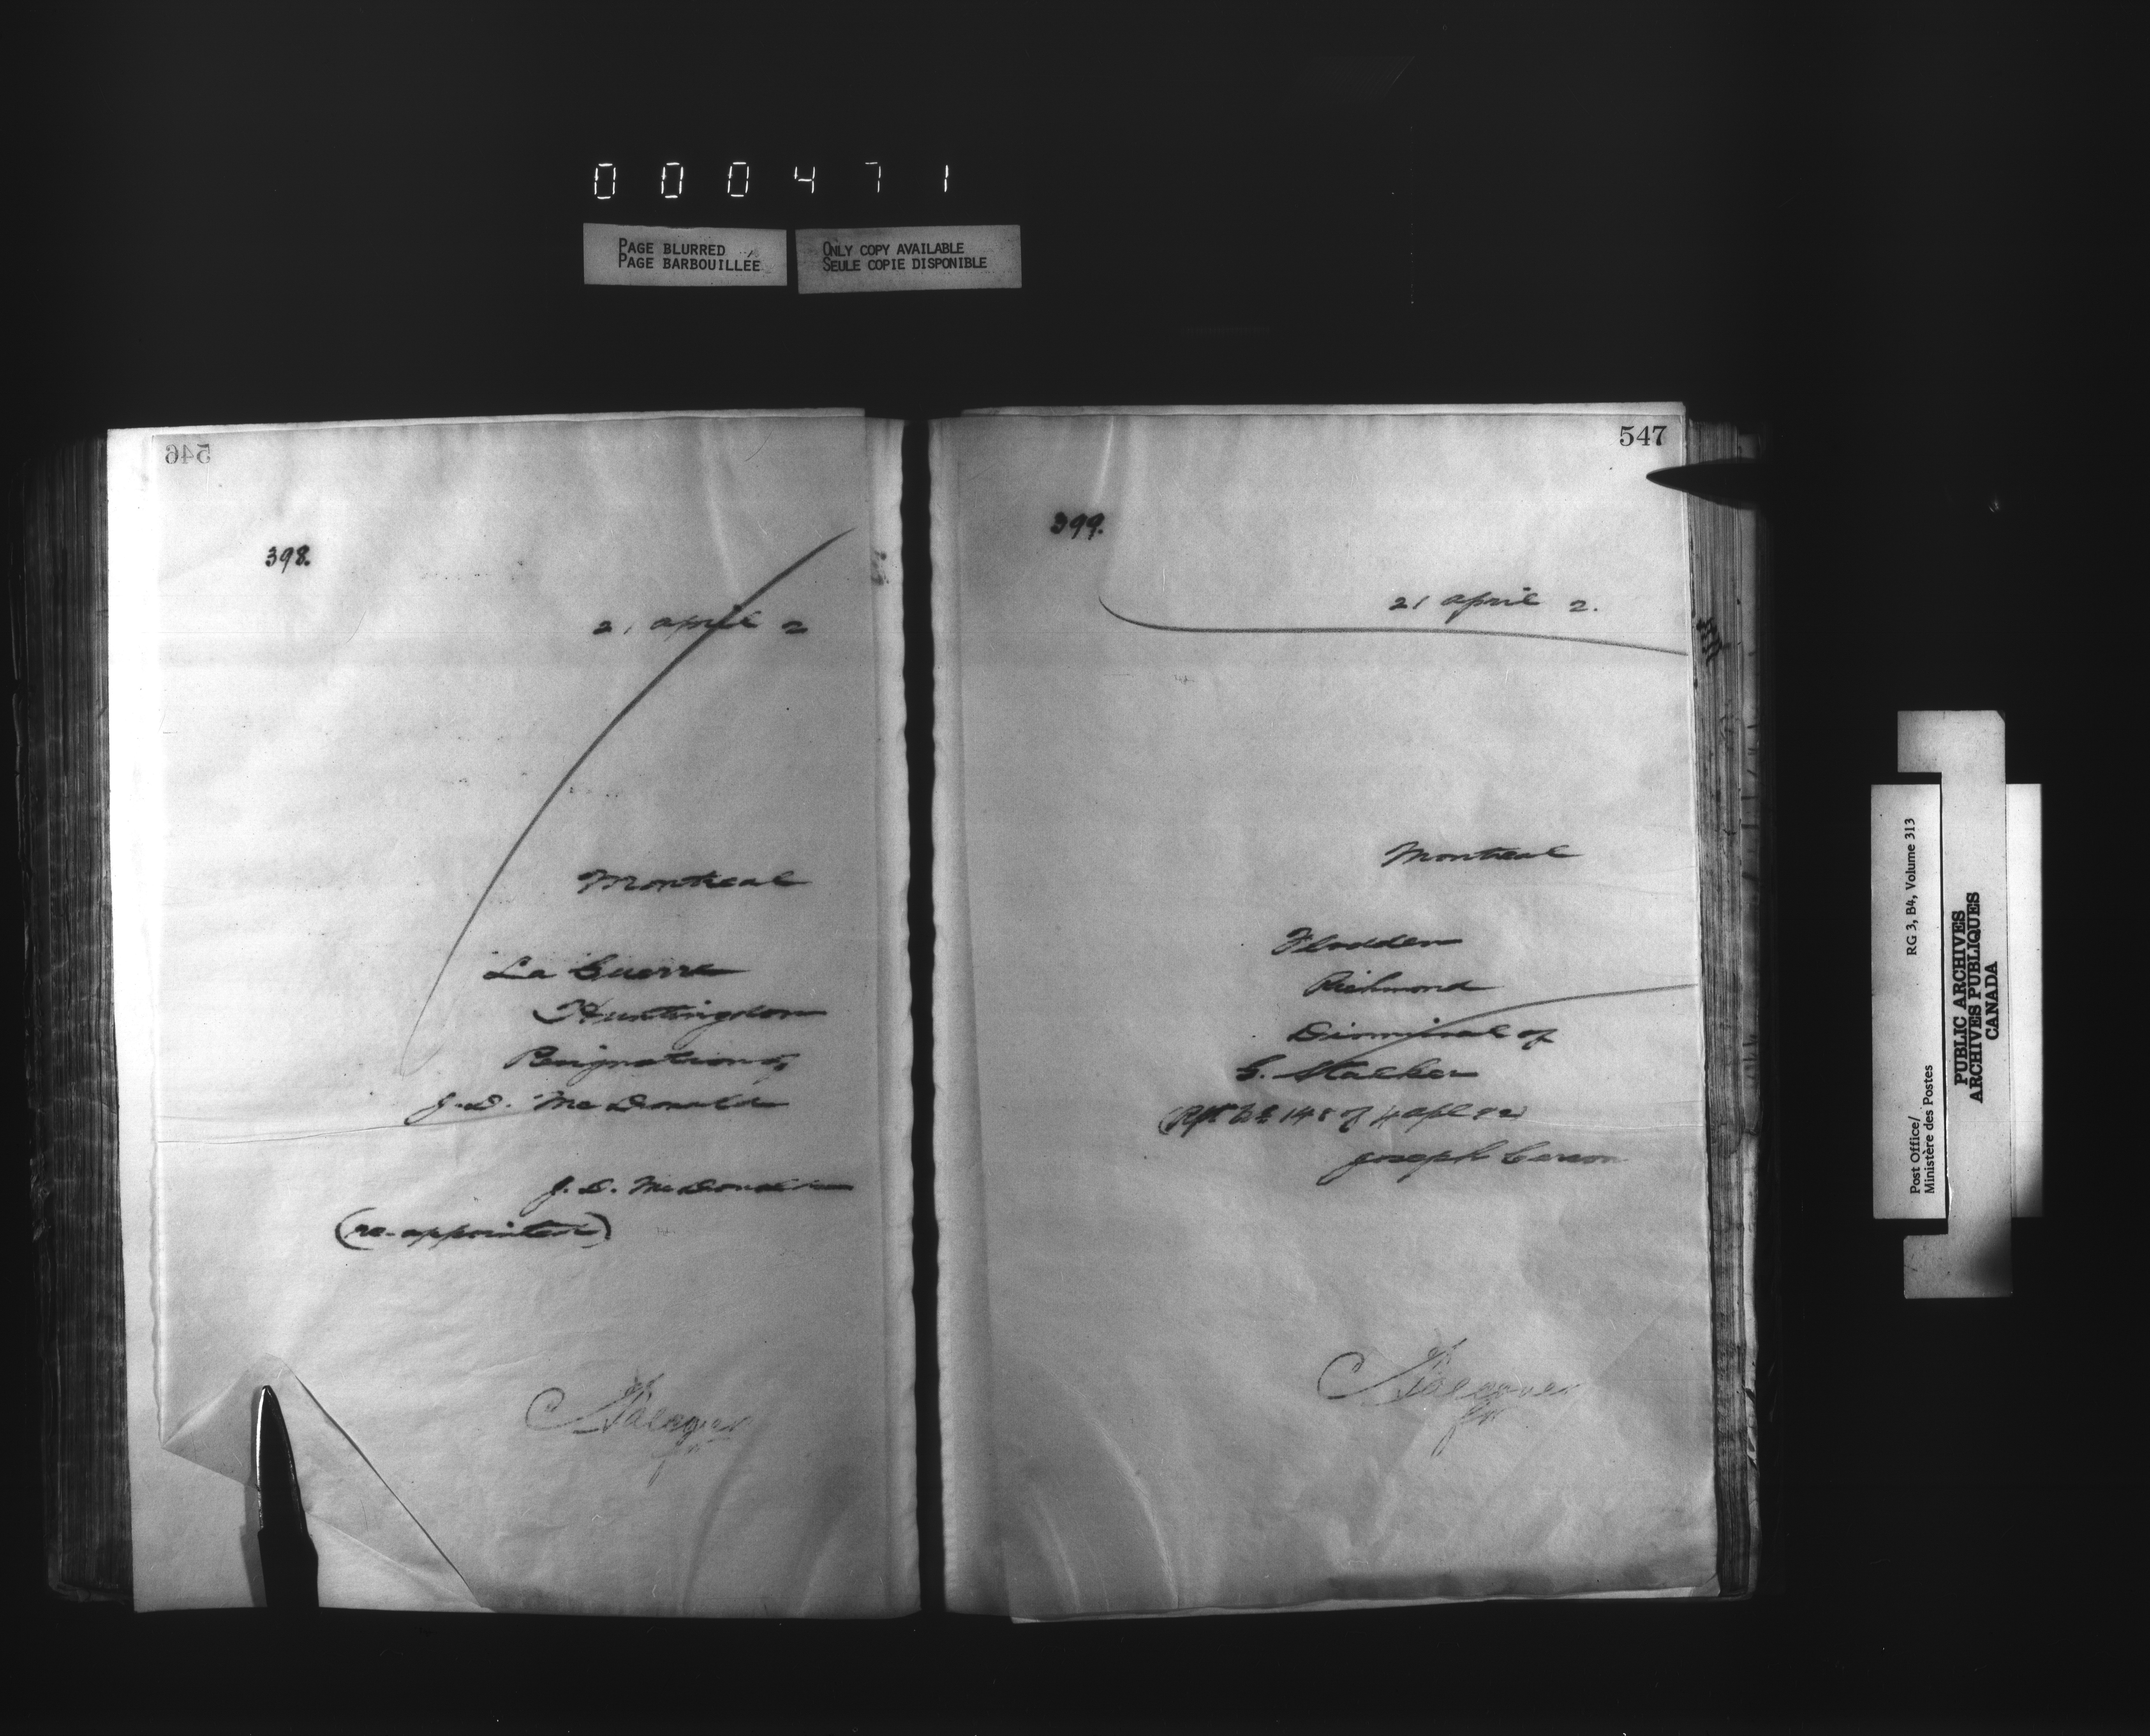 0 0 0 4 7 1
PAGE BLURRED
PAGE BARBOUILLÉE
ONLY COPY AVAILABLE
SEULE COPIE DISPONIBLE
546
398.
21 April 2
Montreal
La Guerre
Huntingdon
Resignation of
J. D. McDonald
J. D. McDonald
(re-appointed)
547
399.
21 April 2.
Montreal
Flodden
Richmond
Dismissal of
G. Stalker
(Rpt No 148 of 4 Apl 82)
Joseph
Post Office/
Ministère des Postes
RG 3, B4, Volume 313
PUBLIC ARCHIVES
ARCHIVES PUBLIQUES
CANADA